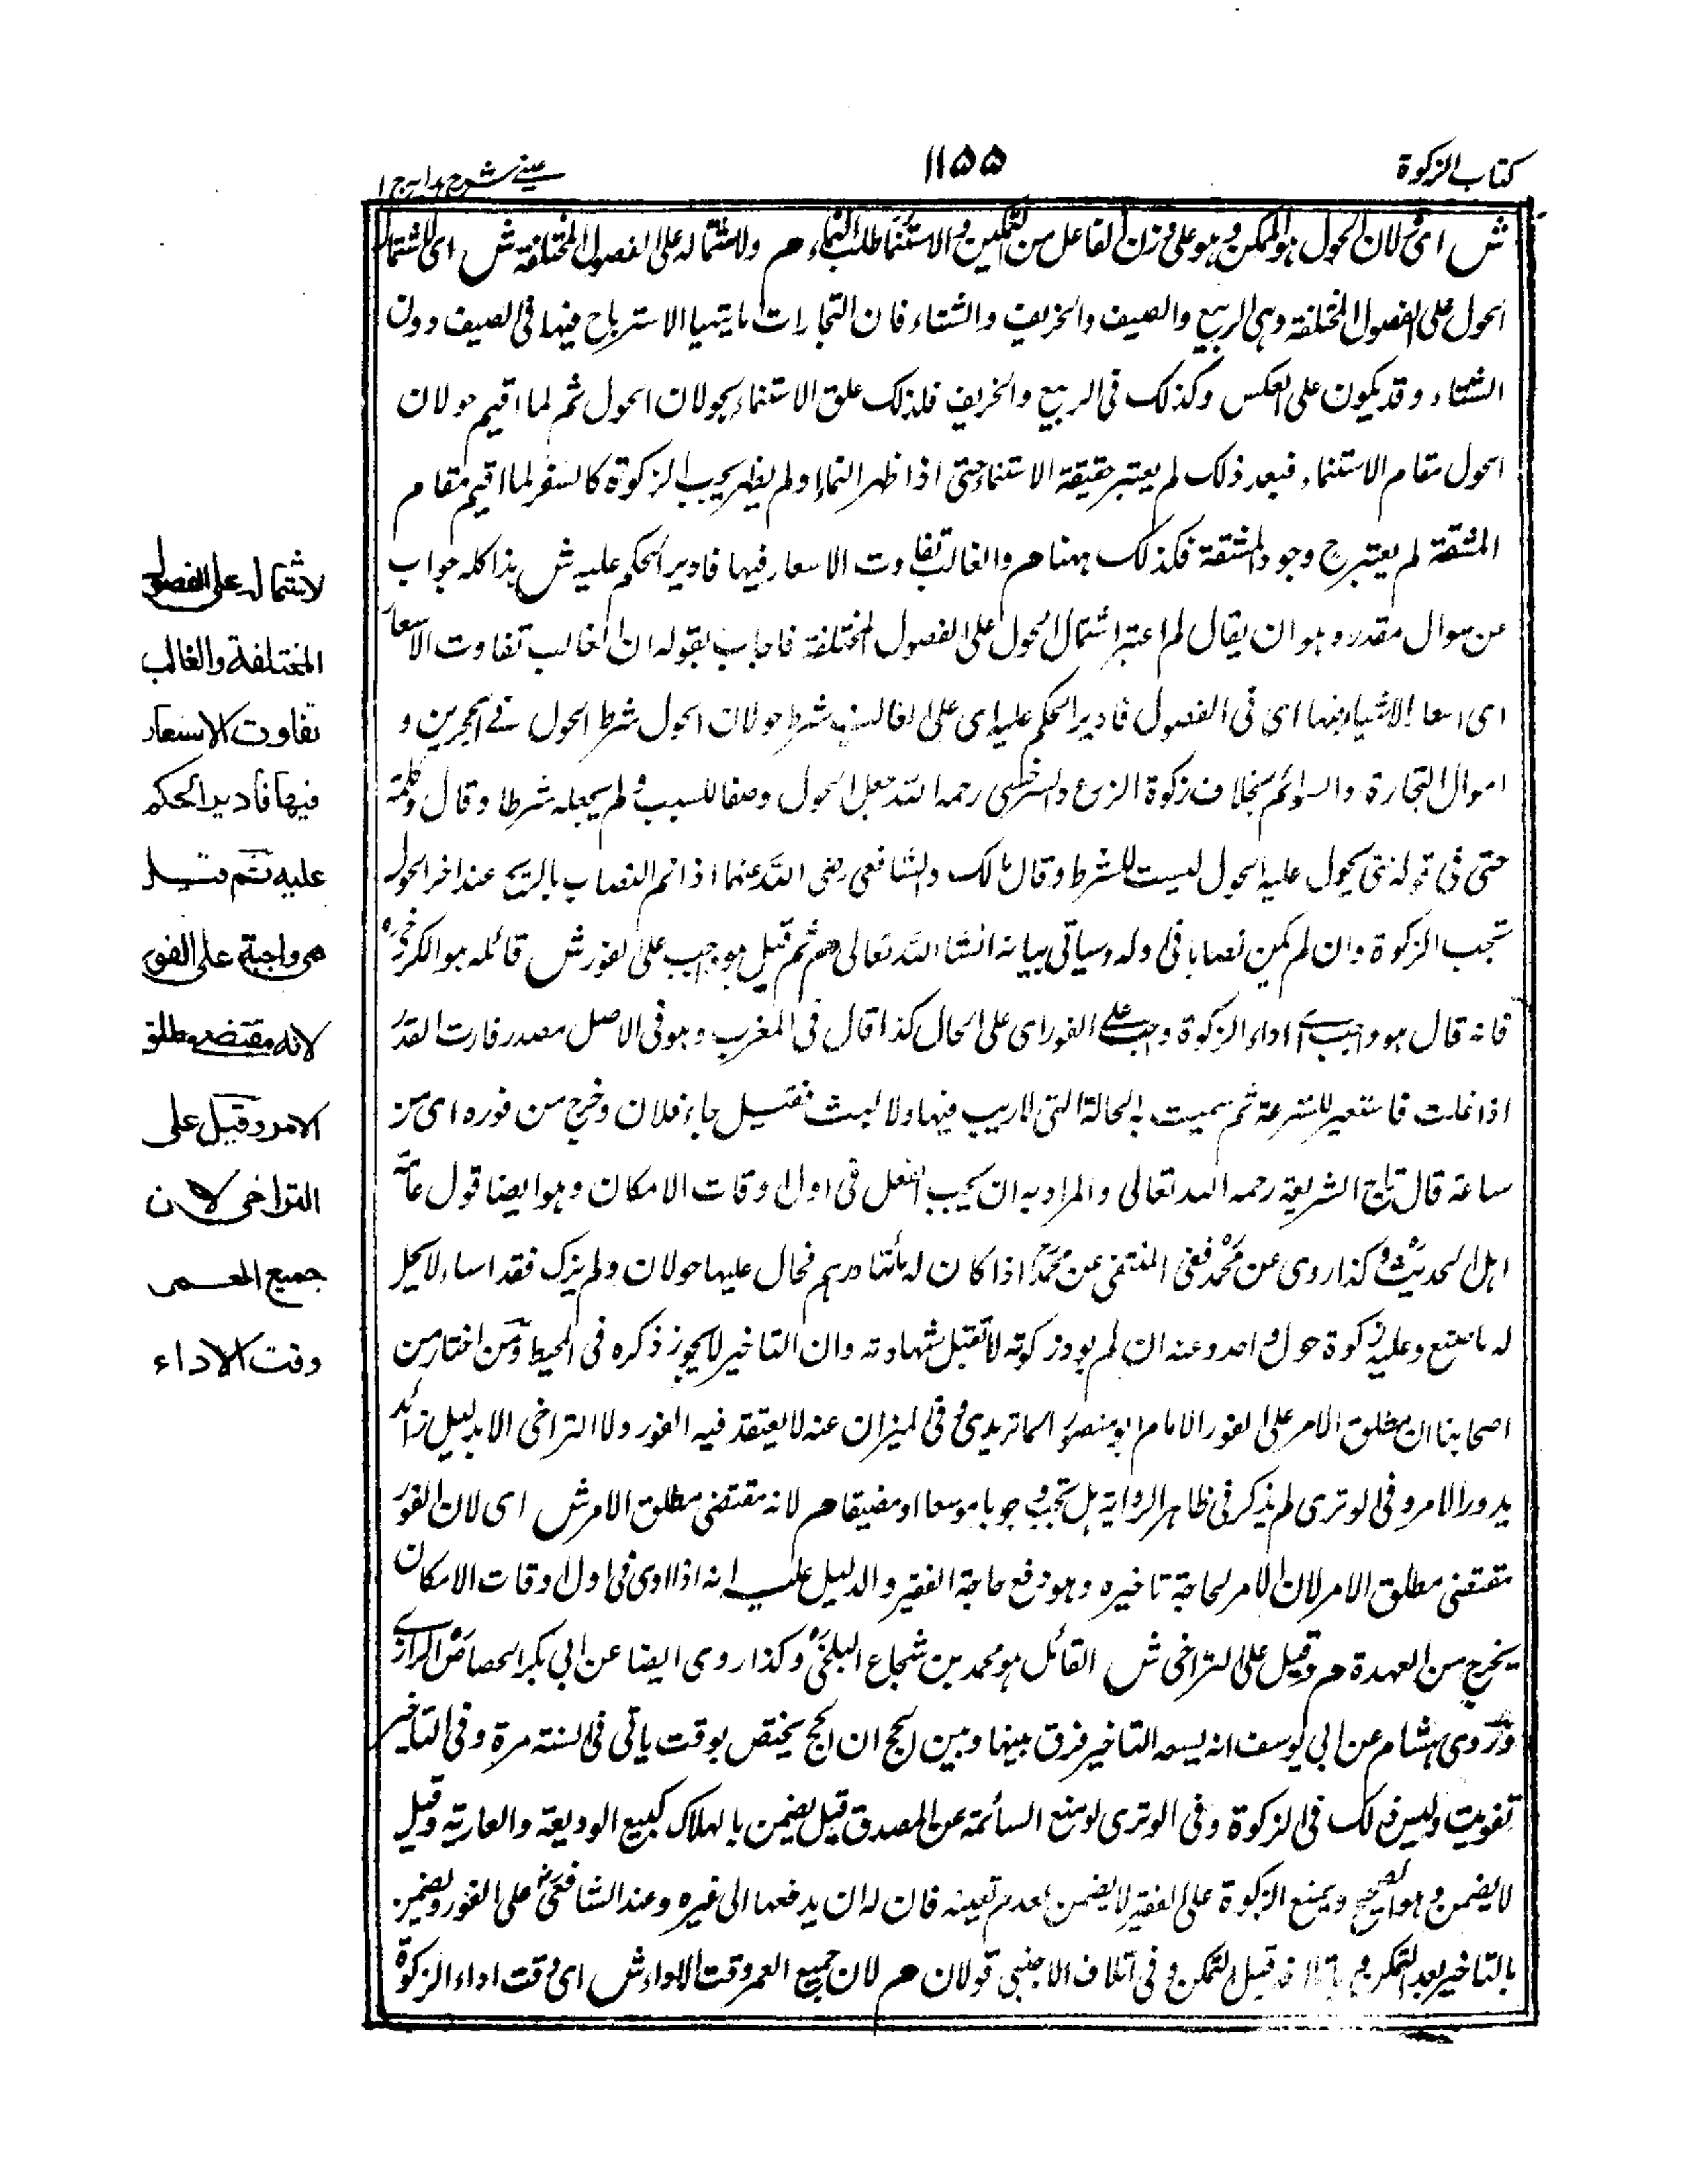 كتاب الزكوة
١١٥٥
عينے شرح هدايہ ج ١
ش اى لان الحول هو الممكن وهو على وزن الفاعل من التمكين والاستنماء طلب النماء م ولاشتماله على الفصول المختلفة ش اى لاشتمال
الحول على الفصول المختلفة وهى الربيع والصيف والخريف والشتاء فان التجارات ما يتهيا الاسترباح فيها فى الصيف دون
الشتاء وقد يكون على العكس وكذلك فى الربيع والخريف فلذلك علق الاستنماء بحولان الحول ثم لما اقيم حولان
الحول مقام الاستنماء فبعد ذلك لم يعتبر حقيقة الاستنماء حتى اذا ظهر النماء او لم يظهر يجب الزكوة كالسفر لما اقيم مقام
المشقة لم يعتبر ح وجود المشقة فكذلك ههنا م والغالب تفاوت الاسعار فيها فادير الحكم عليه ش هذا كله جواب
عن سوال مقدر وهو ان يقال لم اعتبر اشتمال الحول على الفصول المختلفة فاجاب بقوله ان الغالب تفاوت الاسعار
اى اسعار الاشياء فيها اى فى الفصول فادير الحكم عليه اى على الغالب شرط حولان الحول شرط الحول فے الحجرين و
اموال التجارة والسوائم بخلاف زكوة الزرع والسرخسى رحمه الله جعل الحول وصفا للسبب و لم يجعله شرطا وقال وكلمة
حتى فى قوله حتى يحول عليه الحول ليست للشرط وقال مالك والشافعى رضى الله عنهما اذا تم النصاب بالربح عند اخر الحول
تجب الزكوة وان لم يكن نصابا فى اوله وسياتى بيانه انشاء الله تعالى م ثم قيل هو واجب على الفور ش قائله هو الكرخى
فانه قال هو واجب اى اداء الزكوة واجب على الفور اى على الحال كذا قال فى المغرب وهو فى الاصل مصدر فارت القدر
اذا غلت فاستعير للسرعة ثم سميت به الحالة التى لا ريب فيها ولا لبث فقيل جاء فلان وخرج من فوره اى من
ساعته قال تاج الشريعة رحمه الله تعالى والمراد به ان يجب الفعل فى اول اوقات الامكان وهو ايضا قول عامة
اهل الحديث و كذا روى عن محمد ففى المنتقى عن محمد اذا كان له مأتا درهم فحال عليها حولان ولم يزك فقد اساء لا يحل
له ما صنع وعليه زكوة حول واحد وعنه ان لم يود زكوته لا تقبل شهادته وان التاخير لا يجوز ذكره فى المحيط ومن اختار من
اصحابنا ان مطلق الامر على الفور الامام ابو منصور الماتريدى و فى الميزان عنه لا يعتقد فيه الفور ولا التراخى الا بدليل زائد
يدور الامر وفى الوترى لم يذكر فى ظاهر الرواية هل تجب وجوبا موسعا او مضيقا م لانه مقتضى مطلق الامر ش اى لان الفور
مقتضى مطلق الامر لان الامر لحاجة تاخيره وهو دفع حاجة الفقير والدليل عليه انه اذا ادى فى اول اوقات الامكان
يخرج من العهدة م وقيل على التراخى ش القائل هو محمد بن شجاع البلخى و كذا روى ايضا عن ابى بكر الجصاص الرازى
وروى هشام عن ابى يوسف انه يسعه التاخير فرق بينها وبين الحج ان الحج يختص بوقت ياتى فى السنة مرة وفى التاخير
تفويت وليس ذلك فى الزكوة وفى الوترى لو منع السائمة عن المصدق قيل يضمن بالهلاك كبيع الوديعة والعارية وقيل
لا يضمن وهو الصحيح وبمنع الزكوة على الفقير لا يضمن لعدم تعينه فان له ان يدفعها الى غيره وعند الشافعى على الفور ويضمن
بالتاخير بعد التمكن و باتلافه قبل التمكن و فى اتلاف الاجنبى قولان م لان جميع العمر وقت الاداء ش اى وقت اداء الزكوة
لاشتماله على الفصول
المختلفة والغالب
تفاوت الاسعار
فيها فادير الحكم
عليه ثم قيل
هى واجبة على الفور
لانه مقتضے مطلق
الامر وقيل على
التراخى لان
جميع العمر
وقت الاداء